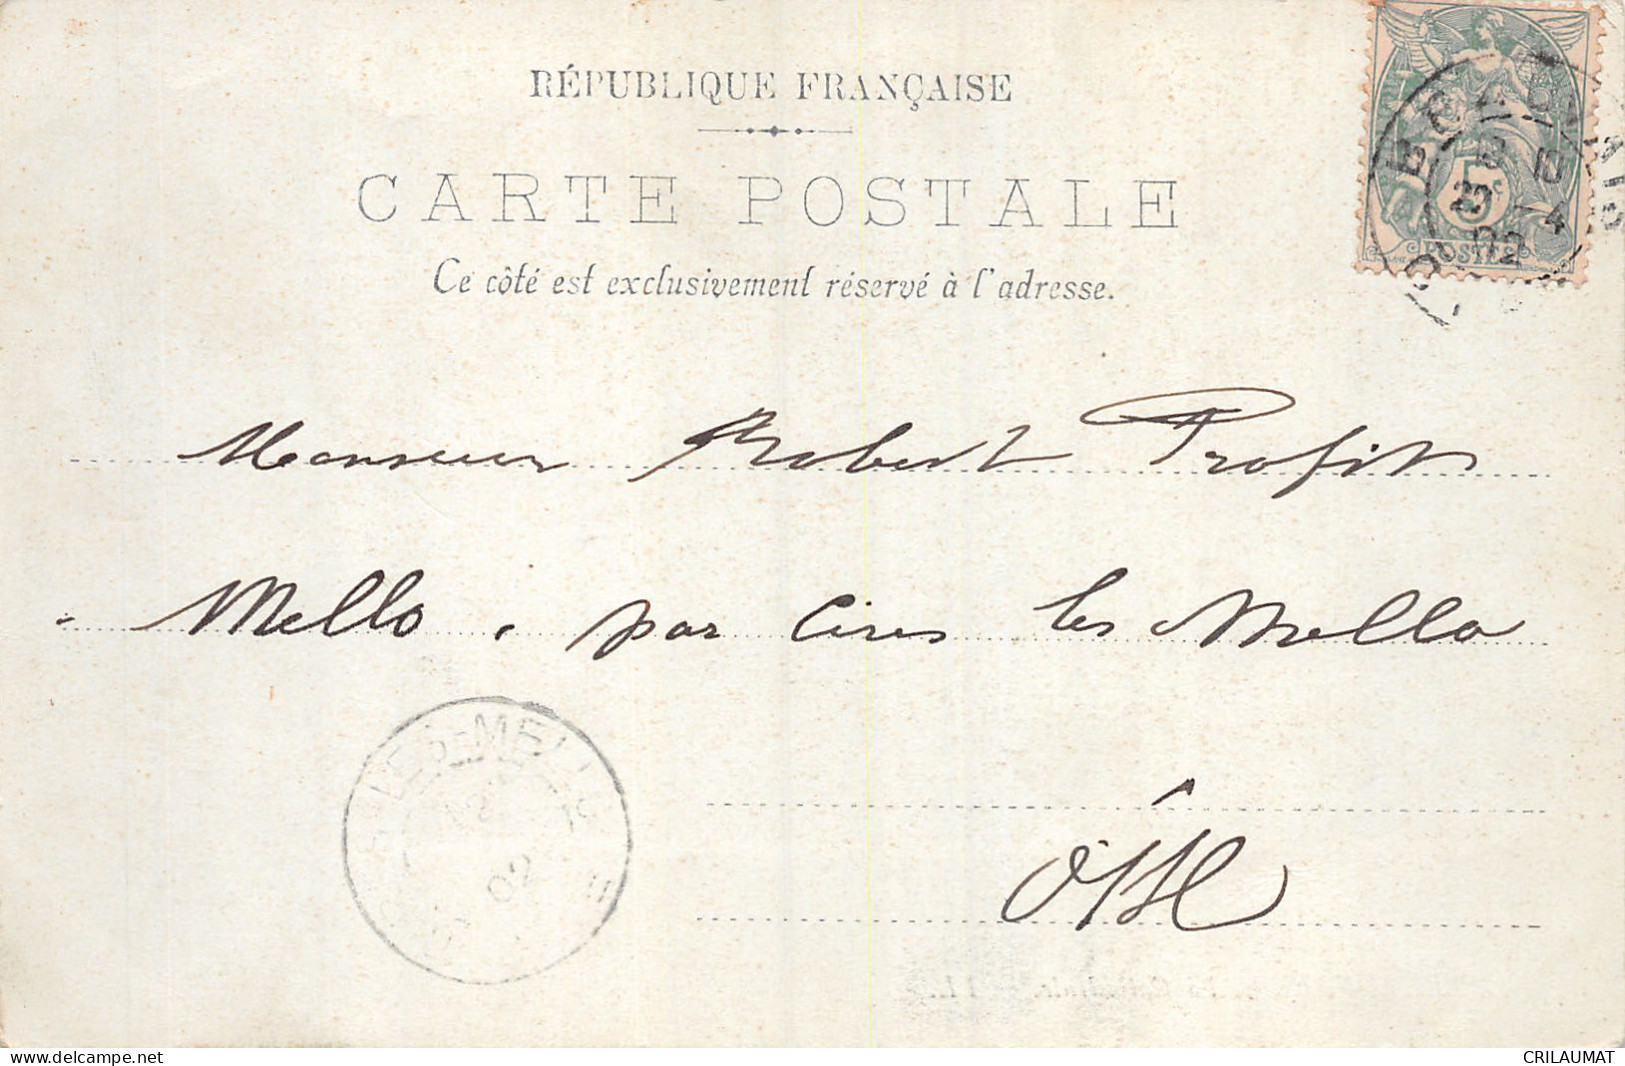 RÉPUBLIQUE FRANÇAISE
CARTE POSTALE
Ce côté est exclusivement réservé à l'adresse.
5c
POSTES
02
Monsieur Robert Profit
Mello, par Cires les Mello
Oise
MELLO
02
delcampe.net
CRILAUMAT